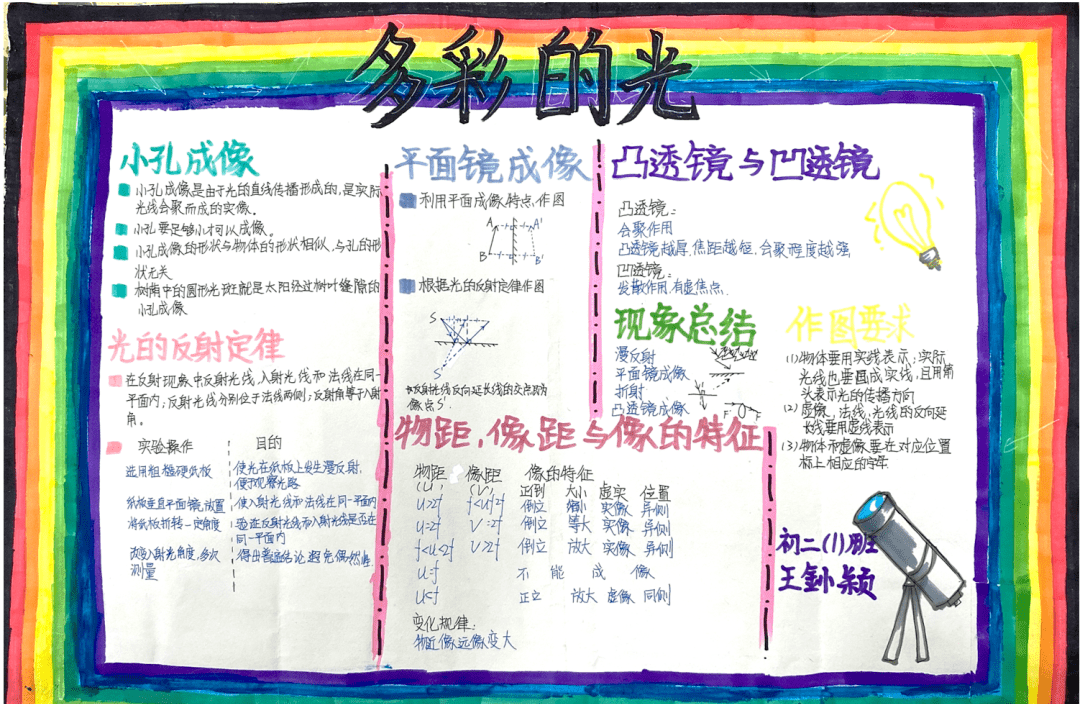 多彩的光
小孔成像
小孔成像是由于光的直线传播形成的,是实际
光线会聚而成的实像。
小孔要足够小才可以成像。
小孔成像的形状与物体的形状相似,与孔的形
状无关
树荫中的圆形光斑就是太阳经过树叶缝隙的
小孔成像
光的反射定律
在反射现象中反射光线,入射光线和法线在同一
平面内;反射光线分别位于法线两侧;反射角等于入射
角。
实验操作 目的
选用粗糙硬纸板 使光在纸板上发生漫反射,
便于观察光路
纸板垂直平面镜放置 使入射光线和法线在同一平面内
将纸板折转一定角度 验证反射光线和入射光线是否在
同一平面内
改变入射光角度,多次 得出普遍结论,避免偶然性
测量
平面镜成像
利用平面成像特点,作图
A A'
B B'
根据光的反射定律作图
S
S'
反射光线反向延长线的交点即为
像点S'
凸透镜与凹透镜
凸透镜:
会聚作用
凸透镜越厚,焦距越短,会聚程度越强
凹透镜:
发散作用,有虚焦点
现象总结
漫反射
平面镜成像
折射
凸透镜成像 F
作图要求
(1)物体要用实线表示;实际
光线也要画成实线,且用箭
头表示光的传播方向
(2)虚像、法线、光线的反向延
长线要用虚线表示
(3)物体和虚像要在对应位置
标上相应的字母
物距,像距与像的特征
物距 像距 像的特征
(u) (v) 正倒 大小 虚实 位置
u>2f f<v<2f 倒立 缩小 实像 异侧
u=2f v=2f 倒立 等大 实像 异侧
f<u<2f v>2f 倒立 放大 实像 异侧
u=f 不能成像
u<f 正立 放大 虚像 同侧
变化规律:
物近像远像变大
初二(1)班
王 颖